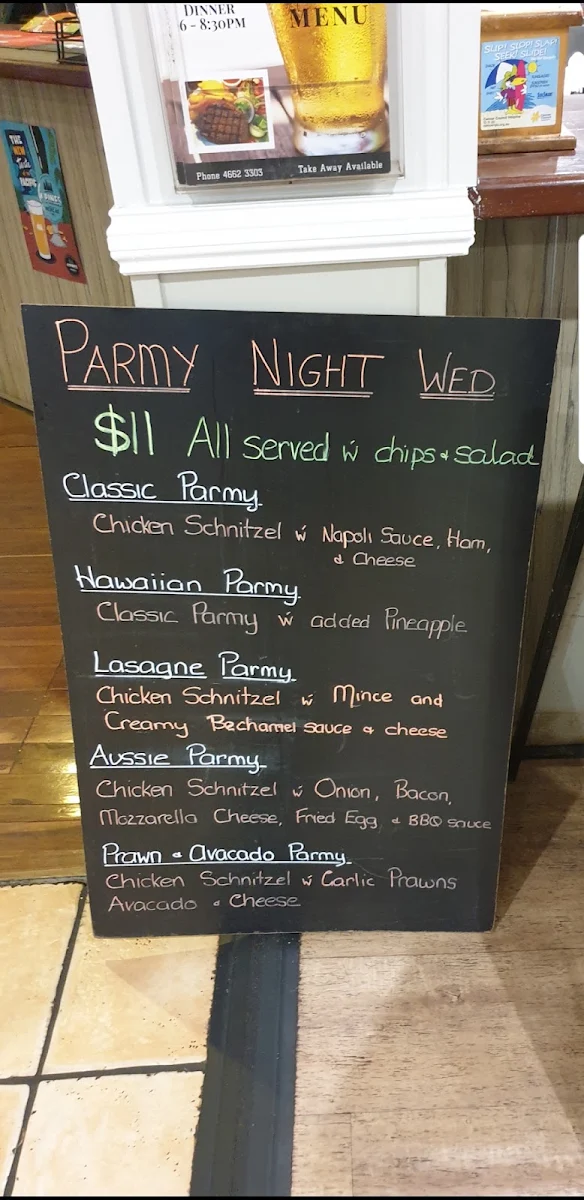 DINNER
6 - 8:30PM
MENU
Phone 4662 3303
Take Away Available
SLIP! SLOP! SLAP!
SEEK! SLIDE!
THE
NEW
PARMY NIGHT WED
$11 All served w chips & salad
Classic Parmy
Chicken Schnitzel w Napoli Sauce, Ham,
& Cheese
Hawaiian Parmy
Classic Parmy w added Pineapple
Lasagne Parmy
Chicken Schnitzel w Mince and
Creamy Bechamel sauce & cheese
Aussie Parmy
Chicken Schnitzel w Onion, Bacon,
Mozzarella Cheese, Fried Egg, & BBQ sauce
Prawn & Avacado Parmy
Chicken Schnitzel w Garlic Prawns
Avacado & Cheese